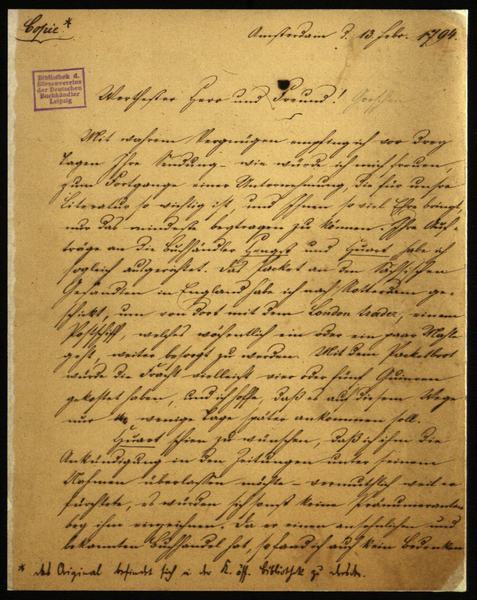 Copie *
Amsterdam d. 13. Febr. 1794.
Bibliothek d.
Börsenvereins
der Deutschen
Buchhändler
Leipzig
Werthester Herr und Freund! Goeschen
Mit wahrem Vergnügen empfing ich vor drey
Tagen Ihre Sendung – wie würde ich mich freuen,
zum Fortgange einer Unternehmung, die für unsre
Literatur so wichtig ist, und Ihnen so viel Ehre bringt,
nur das mindeste beytragen zu können. Ihre Auf-
träge an die Buchhändler Hengst und Huart habe ich
sogleich ausgerichtet. Das Packet an den
Gesandten in England habe ich nach Rotterdam ge-
schickt, um von dort mit dem London trader, einem
Postschiff, welches wöchentlich ein oder ein paar Mahle
geht, weiter besorgt zu werden. Mit dem Packetboot
würde die Fracht vielleicht vier oder fünf Guineen
gekostet haben, und ich hoffe, daß es auf diesem Wege
nur wenige Tage später ankommen soll.
Huart schien zu wünschen, daß ich ihm die
Ankündigung in den Zeitungen unter seinem
Nahmen überlassen möchte – vermuthlich weil er
fürchtete, es würden sich sonst keine Pränumeranten
bey ihm einzeichnen. Da er einen ansehnlichen und
bekannten Buchhandel hat, so fand ich auch kein Bedenken
* das Original befindet sich in der K. öff. Bibliothek zu Dresden.